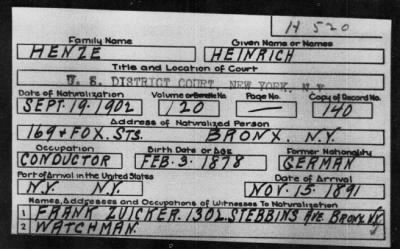 H 520
Family Name Given Name or Names
HENZE HEINRICH
Title and Location of Court
U. S. DISTRICT COURT NEW YORK, N.Y.
Date of Naturalization Volume or Bundle No. Page No. Copy of Record No.
SEPT. 19. 1902 120 — 140
Address of Naturalized Person
169 & FOX. STS. BRONX. N.Y.
Occupation Birth Date or Age Former Nationality
CONDUCTOR FEB. 3. 1878 GERMAN
Port of Arrival in the United States Date of Arrival
N.Y. N.Y. NOV. 15. 1891
Names, Addresses and Occupations of Witnesses To Naturalization
1 FRANK ZUICKER. 1302. STEBBINS AVE BRONX NY
2 WATCHMAN.